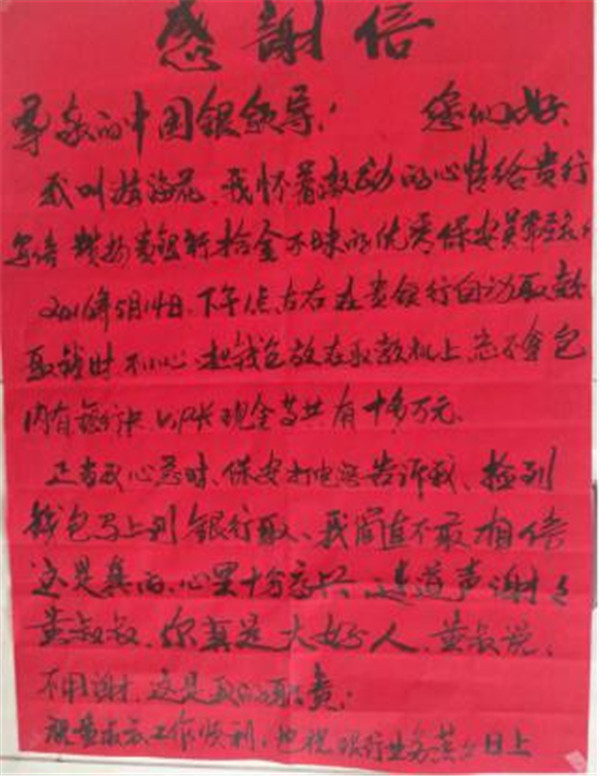 感謝信
尊敬的中国银领导： 您们好、
我叫 海花、我怀着激动的心情给贵行
写信 赞扬贵银行拾金不昧的优秀保安员
2016年5月14日、下午1点左右在贵银行自动取款
取钱时不小心把钱包放在取款机上、忘了拿包
内有银行卡 现金等共有十多万元、
正当我心急时、保安打电话告诉我、捡到
钱包马上到银行取、我简直不敢相信
这是真的、心里十分高兴 连道声谢谢
黄叔叔、你真是大好人、黄叔说、
不用谢、这是我的职责；
祝黄叔叔工作顺利，也祝银行业务蒸蒸日上